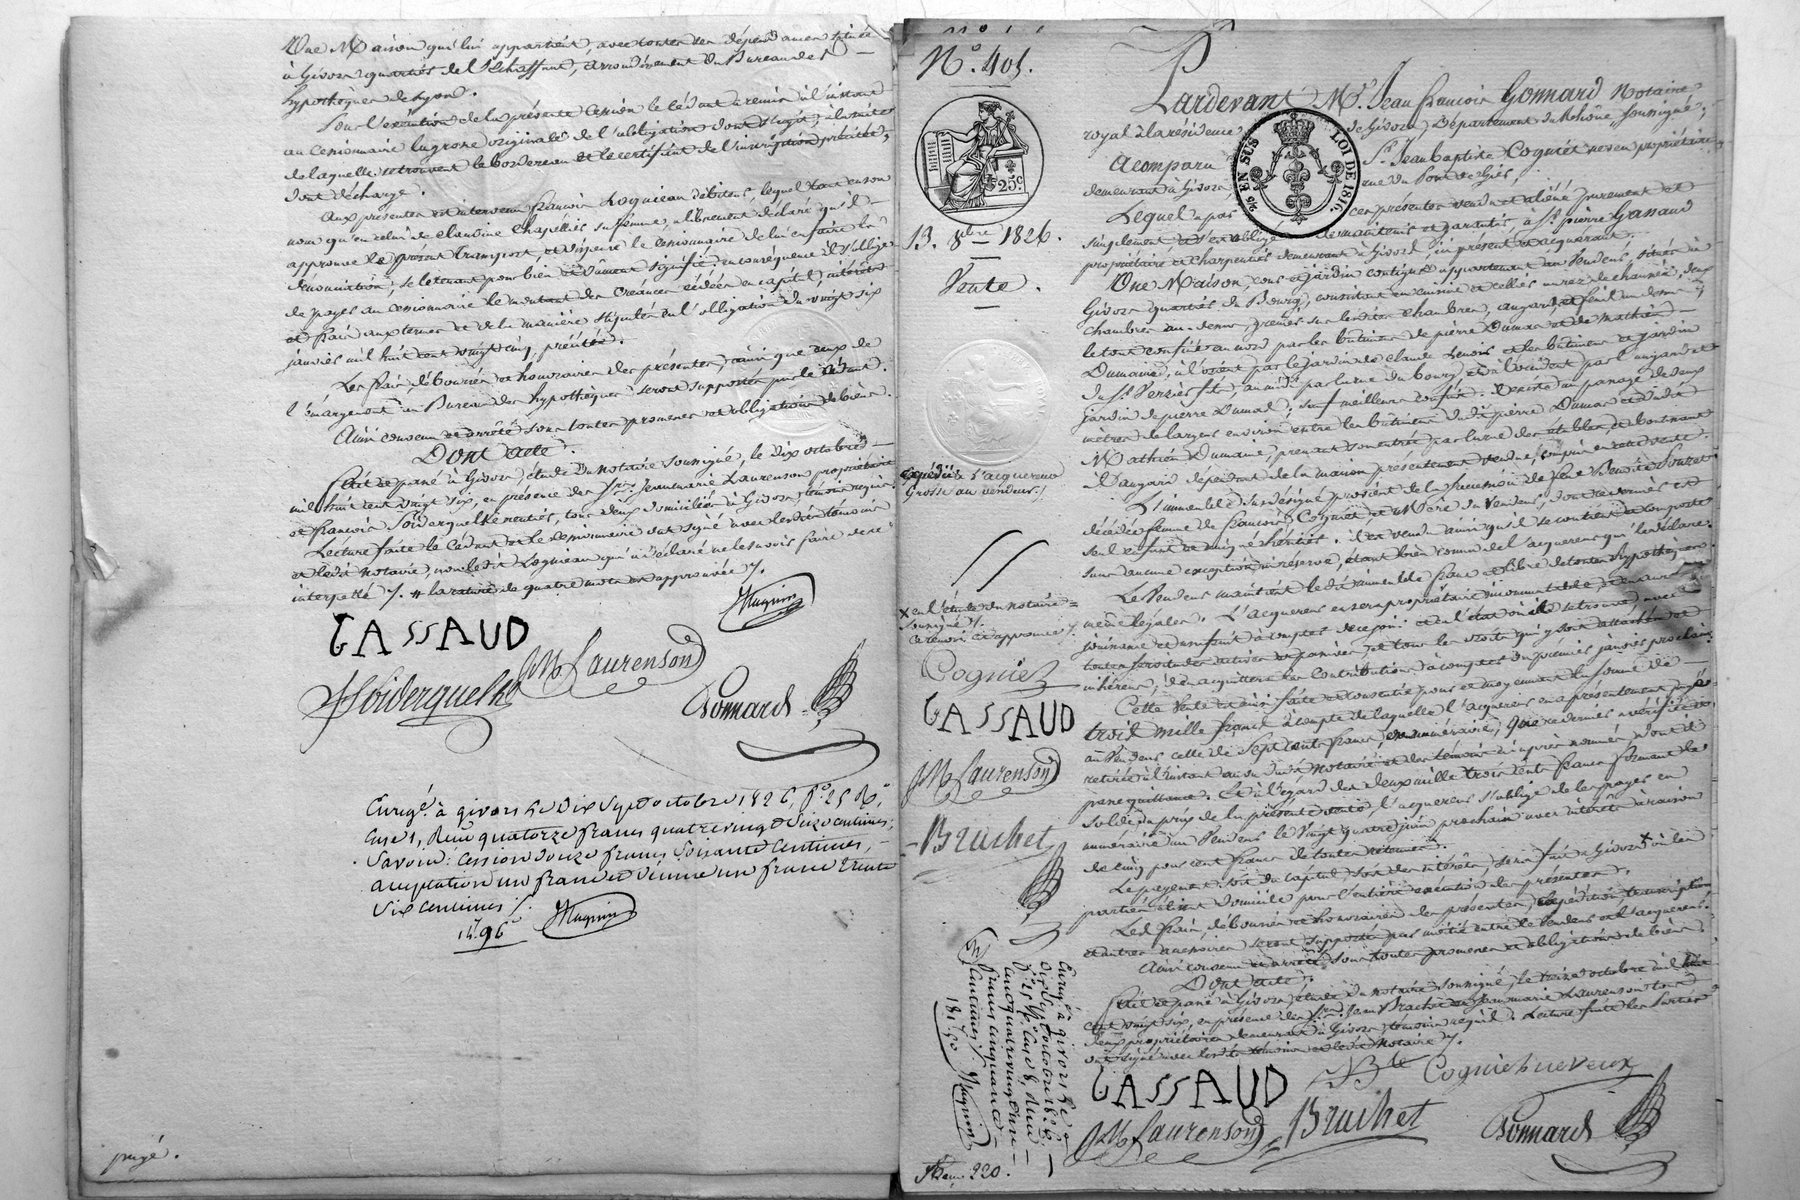 Une Maison qui lui appartient, avec toutes ses dépendances située
à Givors quartier de l'Echaffaut, arrondissement du Bureau des
hypothèques de Lyon.
Pour l'exécution de la présente cession le cédant a remis à l'instant
au cessionnaire la grosse originale de l'obligation dont s'agit, à la suite
de laquelle se trouvent le bordereau et le certificat de l'inscription précitée,
dont décharge.
Aux présentes est intervenu françois Logniean débiteur, lequel tant en son
nom qu'en celui de Claudine Chapellier sa femme, a librement déclaré qu'il
approuve le présent transport, et dispense le cessionnaire de lui en faire la
dénonciation, se tenant pour bien et dûment signifié; en conséquence il s'oblige
de payer au cessionnaire le montant des créances cédées en capital, intérêts
et frais aux termes et de la manière stipulés en l'obligation du vingt six
janvier mil huit cent vingt cinq, précitée.
Les frais, déboursés et honoraires des présentes, ainsi que ceux de
l'émargement au Bureau des hypothèques seront supportés par le cédant.
Ainsi convenu et arrêté sous toutes promesses et obligations de biens.
Dont acte.
fait et passé à Givors, étude du notaire soussigné, le dix octobre
mil huit cent vingt six, en présence des Srs. Jeanmarie Laurenson propriétaire
et françois Soiderquelk rentier, tous deux domiciliés à Givors témoins requis
Lecture faite le Cédant et le cessionnaire ont signé avec lesdits témoins
et ledit notaire, non ledit Logniean qui a déclaré ne le savoir faire de ce
interpellé /. la rature de quatre mots est approuvée /.
Magnin
GASSAUD
JM Laurenson
fSoiderquelk
Gonnard
Enregé. à givors le Dix Sept octobre 1826, fo. 25 Ro.
Case 1, Reçu quatorze francs quatre vingt Seize centimes;
Savoir: cession douze francs soixante centimes,
acceptation un franc et dixième un franc trente
Six centimes /.
14f. 96c
Magnin
payé.
No. 401.
25c.
13. 8bre 1826.
Vente.
Expédié à l'acquéreur
Grosse au vendeur /.
x en l'étude du notaire
soussigné /.
ce renvoi est approuvé /.
Cogniet
GASSAUD
JM Laurenson
Brachet
Enregé à givors le
dix Sept octobre 1826,
fo. 25 Vo. Case 8, Reçu
cent quatre vingt un
francs cinquante
centimes /.
181f. 50
Magnin
220.
Pardevant Me. Jean françois Gonnard Notaire
royal à la résidence de Givors, Département du Rhône, soussigné,
EN SUS
LOI DE 1816.
A comparu Sr. Jean baptiste Cogniet neveu propriétaire
demeurant à Givors, rue du Pont de Gier,
Lequel a par ces présentes vendu et aliéné purement et
simplement et s'est obligé de maintenir et garantir, à Sr. pierre Gassaud
propriétaire et charpentier demeurant à Givors, ici présent et acquérant.
Une Maison, cour et jardin contigus appartenant au Vendeur, situés à
Givors quartier du Bourg, consistant en cuisine et cellier au rez de chaussée, deux
chambres au-dessus, grenier sur lesdites chambres, angard, et fenil au dessus;
le tout confiné au nord par les bâtimens de pierre Dumas et de Mathieu
Dumaine, à l'orient par le jardin de claude Lenoir et les bâtimens et jardin
du Sr. Verzier fils, au midi par la rue du bourg et à l'occident par l'angard et
jardin de pierre Dumas, sauf meilleurs confins. Il existe un passage de deux
mètres de largeur environ entre les bâtimens dudit pierre Dumas et dudit
Mathieu Dumaine, prenant son entrée par la rue des étables, et aboutissant
à l'angard dépendant de la maison présentement vendue, compris en cette vente.
L'immeuble sus désigné provient de la succession de feue Benoîte Souret
décédée femme de françois Cogniet, et Mère du Vendeur, dont ce dernier est
seul enfant et unique héritier. Il est vendu ainsi qu'il se contient et comporte
sans aucune exception ni réserve, étant bien connu de l'acquéreur qui le déclare.
Le Vendeur maintient ledit immeuble franc et libre de toutes hypothèques
même légales. L'acquéreur en sera propriétaire incommutable et demeurera
jouissant et usufruit à compter de ce jour, en l'état où il se trouve avec
toutes servitudes actives et passives, et tous les droits qui y sont attachés et
inhérens, il en acquittera les contributions à compter du premier janvier prochain
Cette Vente est ainsi faite et consentie pour et moyennant la somme de
trois mille francs à compte de laquelle l'acquéreur en a présentement payé
au Vendeur celle de Sept cents francs en numéraire, que ce dernier a vérifiée et
retirée à l'instant au vu dudit notaire et des témoins ci après nommés dont il
passe quittance. Et à l'égard des deux mille trois cents francs formant le
solde du prix de la présente vente, l'acquéreur s'oblige de les payer en
numéraire au Vendeur le Vingt quatre juin prochain avec intérêts à raison
de cinq pour cent francs de toutes retenues.
Le payement soit du capital soit des intérêts, sera fait à Givors x où les
parties élisent domicile pour l'entière exécution des présentes.
Les frais, déboursés et honoraires des présentes, expédition, transcription
et autres accessoires seront supportés par moitié entre le Vendeur et l'acquéreur.
Ainsi convenu et arrêté sous toutes promesses et obligations de biens.
Dont acte.
fait et passé à Givors, étude du notaire soussigné, le treize octobre mil huit
cent vingt six, en présence des Srs. Jean Brachet et Jeanmarie Laurenson tous
deux propriétaires demeurant à Givors témoins requis. Lecture faite les parties
ont signé avec lesdits témoins et ledit Notaire /.
GASSAUD
JBte Cogniet neveux
JM Laurenson
Brachet
Gonnard